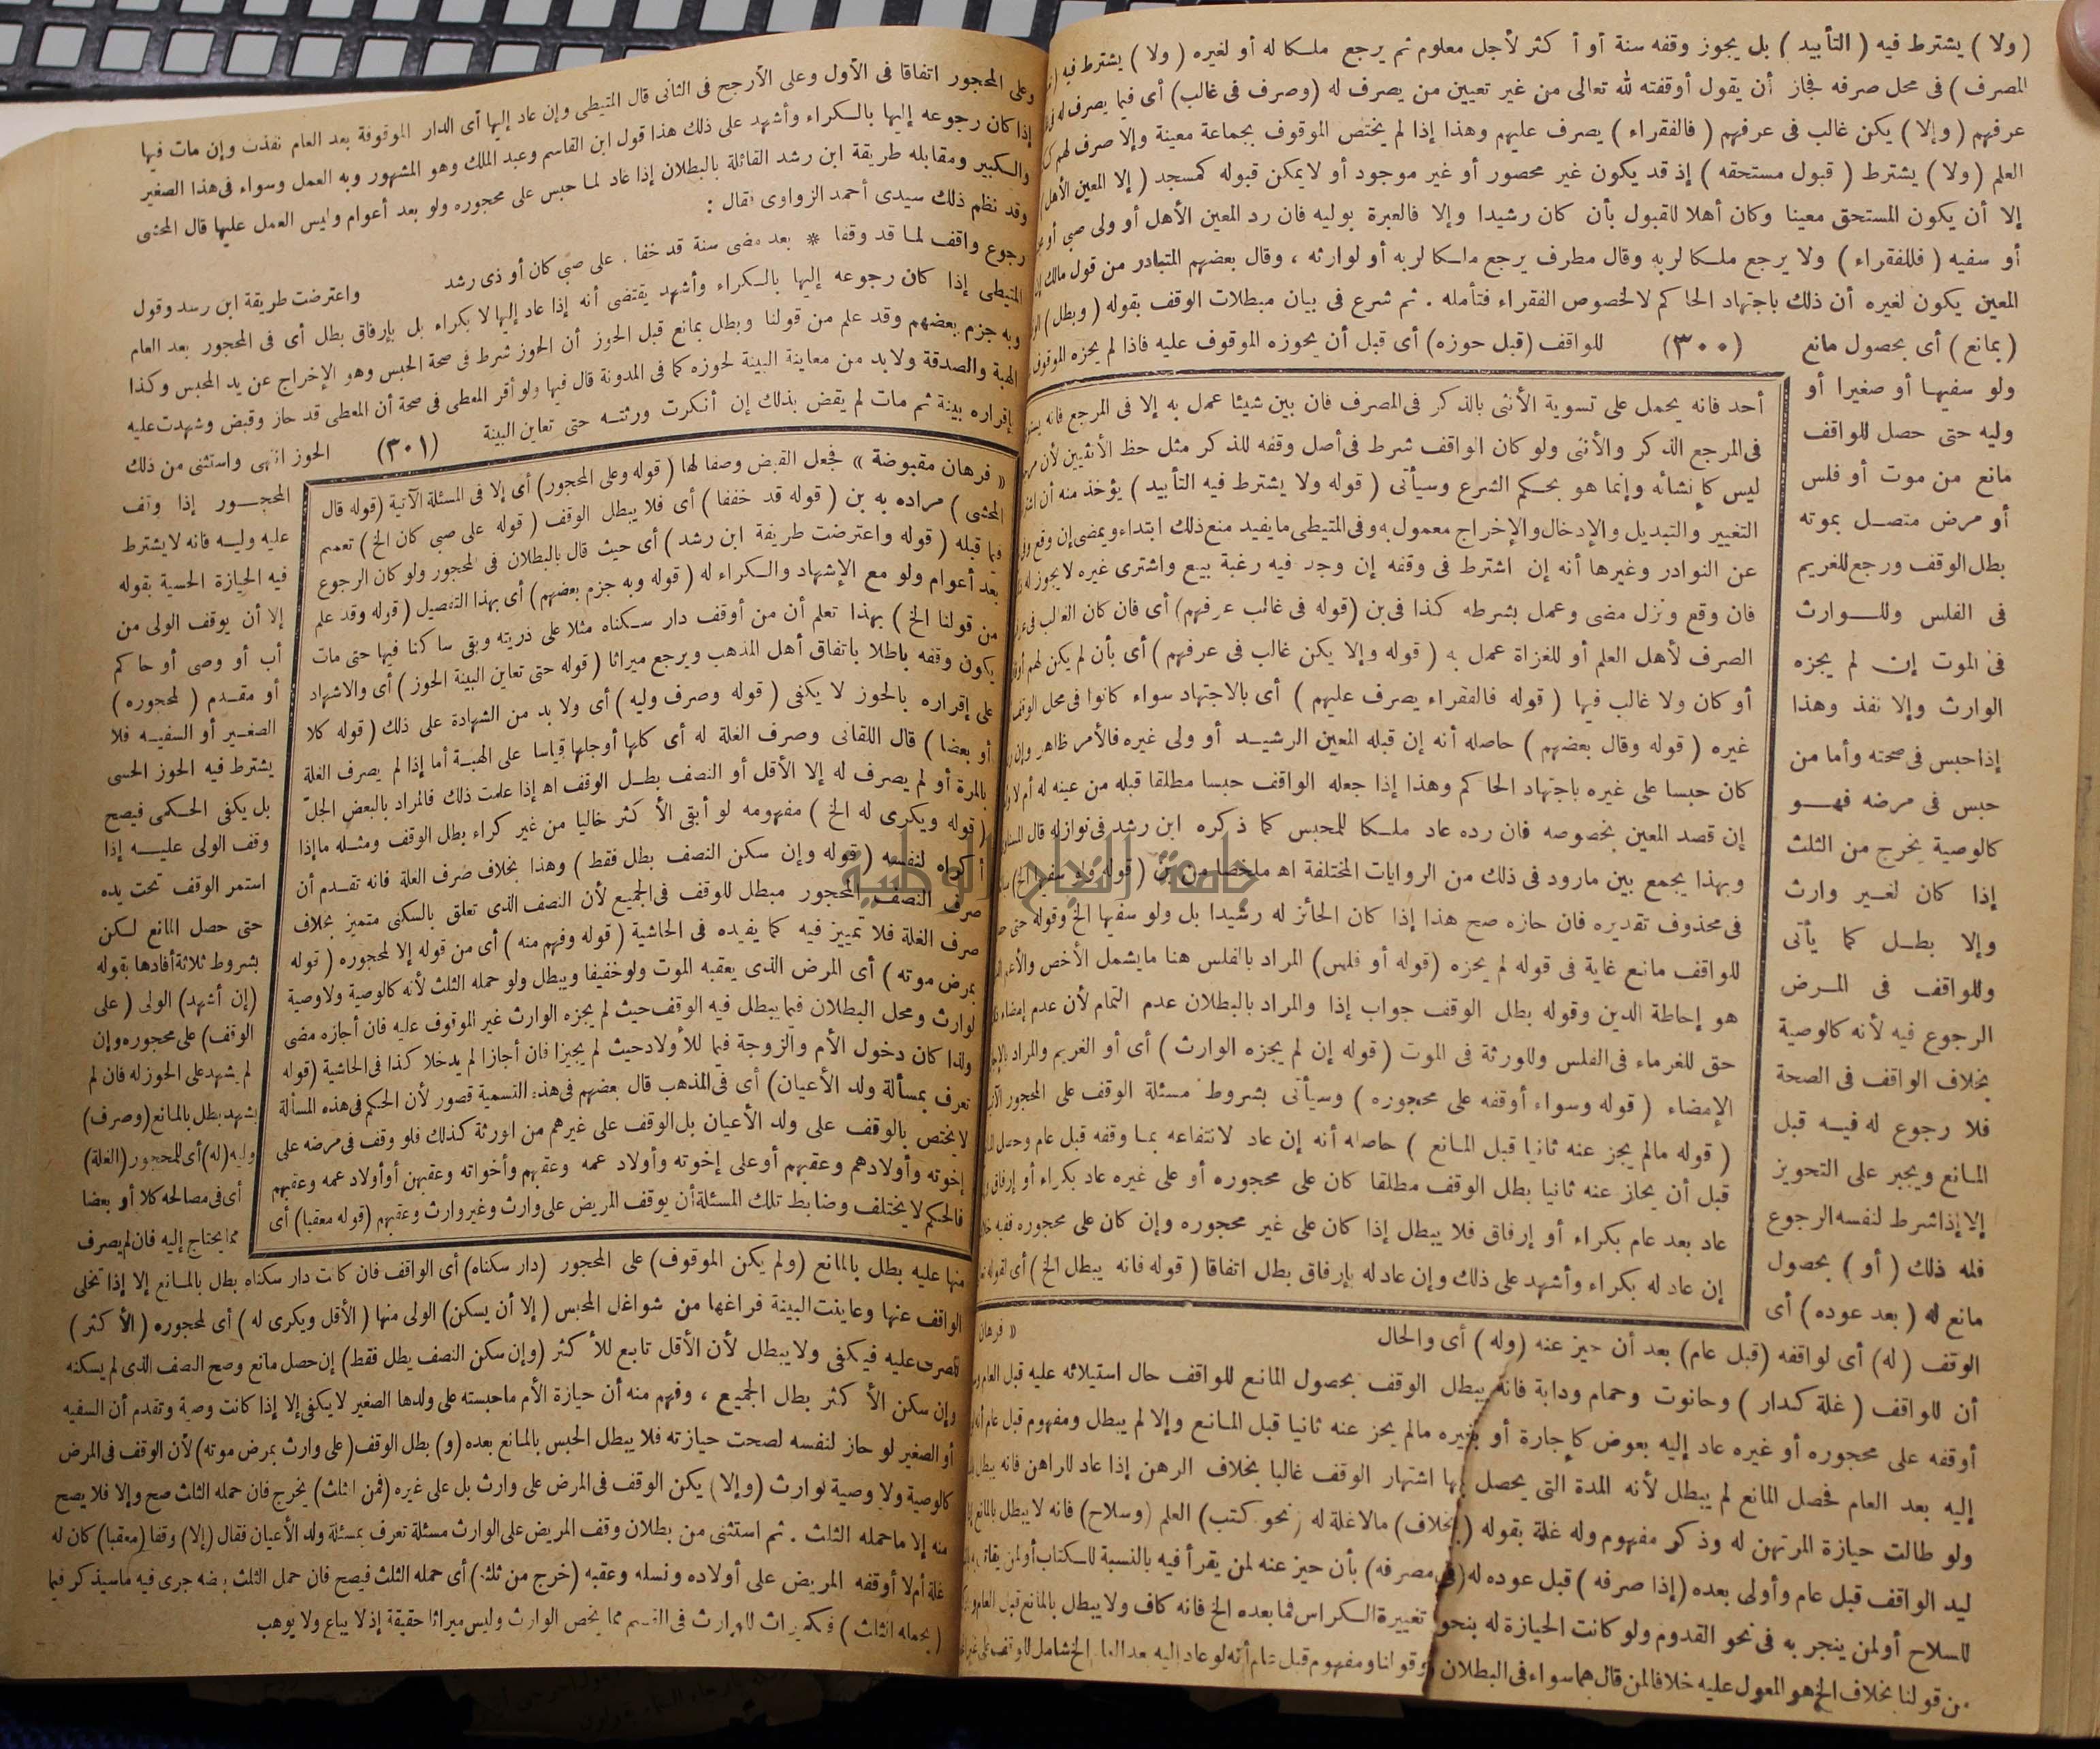 (ولا) يشترط فيه (التأبيد) بل يجوز وقفه سنة أو أكثر لأجل معلوم ثم يرجع ملكا له أو لغيره (ولا) يشترط فيه
المصرف) فى محل صرفه فجاز أن يقول أوقفته لله تعالى من غير تعيين من يصرف له (وصرف فى غالب) أى فيما يصرف له فى
عرفهم (وإلا) يكن غالب فى عرفهم (فالفقراء) يصرف عليهم وهذا إذا لم يختص الموقوف بجماعة معينة وإلا صرف لهم
العلم (ولا) يشترط (قبول مستحقه) إذ قد يكون غير محصور أو غير موجود أو لا يمكن قبوله كمسجد (إلا المعين الأهل
إلا أن يكون المستحق معينا وكان أهلا للقبول بأن كان رشيدا وإلا فالعبرة بوليه فان رد المعين الأهل أو ولى صبى أو
أو سفيه (فللفقراء) ولا يرجع ملكا لربه وقال مطرف يرجع ملكا لربه أو لوارثه ، وقال بعضهم المتبادر من قول مالك
المعين يكون لغيره أن ذلك باجتهاد الحاكم لا لخصوص الفقراء فتأمله . ثم شرع فى بيان مبطلات الوقف بقوله (وبطل)
(بمانع) أى بحصول مانع (٣٠٠) للواقف (قبل حوزه) أى قبل أن يحوزه الموقوف عليه فاذا لم يحزه الموقوف
ولو سفيها أو صغيرا أو
وليه حتى حصل للواقف
مانع من موت أو فلس
أو مرض متصل بموته
بطل الوقف ورجع للغريم
فى الفلس وللوارث
فى الموت إن لم يجزه
الوارث وإلا نفذ وهذا
إذا حبس فى صحته وأما من
حبس فى مرضه فهو
كالوصية يخرج من الثلث
إذا كان لغير وارث
وإلا بطل كما يأتى
وللواقف فى المرض
الرجوع فيه لأنه كالوصية
بخلاف الواقف فى الصحة
فلا رجوع له فيه قبل
المانع ويجبر على التحويز
إلا إذا شرط لنفسه الرجوع
فله ذلك (أو) بحصول
مانع له (بعد عوده) أى
أحد فانه يحمل على تسوية الأنثى بالذكر فى المصرف فان بين شيئا عمل به إلا فى المرجع فانه
فى المرجع الذكر والأنثى ولو كان الواقف شرط فى أصل وقفه للذكر مثل حظ الأنثيين لأن
ليس كإنشائه وإنما هو بحكم الشرع وسيأتى (قوله ولا يشترط فيه التأبيد) يؤخذ منه أن
التغيير والتبديل والإدخال والإخراج معمول به وفى المتيطى ما يفيد منع ذلك ابتداء ويمضى إن وقع
عن النوادر وغيرها أنه إن اشترط فى وقفه إن وجد فيه رغبة بيع واشترى غيره لا يجوز له
فان وقع ونزل مضى وعمل بشرطه كذا فى بن (قوله فى غالب عرفهم) أى فان كان الغالب فى
الصرف لأهل العلم أو للغزاة عمل به (قوله وإلا يكن غالب فى عرفهم) أى بأن لم يكن لهم
أو كان ولا غالب فيها (قوله فالفقراء يصرف عليهم) أى بالاجتهاد سواء كانوا فى محل الوقف
غيره (قوله وقال بعضهم) حاصله أنه إن قبله المعين الرشيد أو ولى غيره فالأمر ظاهر وإن
كان حبسا على غيره باجتهاد الحاكم وهذا إذا جعله الواقف حبسا مطلقا قبله من عينه له أم لا
إن قصد المعين بخصوصه فان رده عاد ملكا للمحبس كما ذكره ابن رشد فى نوازله قال
وبهذا يجمع بين ما ورد فى ذلك من الروايات المختلفة اه ملخصا من بن (قوله ولو سفيها الخ)
فى محذوف تقديره فان حازه صح هذا إذا كان الحائز له رشيدا بل ولو سفيها الخ وقوله حتى
للواقف مانع غاية فى قوله لم يحزه (قوله أو فلس) المراد بالفلس هنا ما يشمل الأخص والأعم
هو إحاطة الدين وقوله بطل الوقف جواب إذا والمراد بالبطلان عدم التمام لأن عدم إمضاء
حق للغرماء فى الفلس وللورثة فى الموت (قوله إن لم يجزه الوارث) أى أو الغريم والمراد
الإمضاء (قوله وسواء أوقفه على محجوره) وسيأتى بشروط مسئلة الوقف على المحجور
(قوله مالم يحز عنه ثانيا قبل المانع) حاصله أنه إن عاد لانتفاعه بما وقفه قبل عام وحصل
قبل أن يحاز عنه ثانيا بطل الوقف مطلقا كان على محجوره أو على غيره عاد بكراء أو إرفاق
عاد بعد عام بكراء أو إرفاق فلا يبطل إذا كان على غير محجوره وإن كان على محجوره ففيه
إن عاد له بكراء وأشهد على ذلك وإن عاد له بإرفاق بطل اتفاقا (قوله فانه يبطل الخ) أى
« فرهان
الوقف (له) أى لواقفه (قبل عام) بعد أن حيز عنه (وله) أى والحال
أن للواقف (غلة كدار) وحانوت وحمام ودابة فانه يبطل الوقف بحصول المانع للواقف حال استيلائه عليه قبل العام
أوقفه على محجوره أو غيره عاد إليه بعوض كإجارة أو بغيره مالم يحز عنه ثانيا قبل المانع وإلا لم يبطل ومفهوم قبل عام
إليه بعد العام فحصل المانع لم يبطل لأنه المدة التى يحصل بها اشتهار الوقف غالبا بخلاف الرهن إذا عاد للراهن فانه يبطل
ولو طالت حيازة المرتهن له وذكر مفهوم وله غلة بقوله (بخلاف) مالا غلة له (نحو كتب) العلم (وسلاح) فانه لا يبطل بالمانع
ليد الواقف قبل عام وأولى بعده (إذا صرفه) قبل عوده له (فى مصرفه) بأن حيز عنه لمن يقرأ فيه بالنسبة للكتاب أو لمن يقاتل
للسلاح أو لمن ينجر به فى نحو القدوم ولو كانت الحيازة له بنحو تغييرة الكراس فما بعده الخ فانه كاف ولا يبطل بالمانع قبل العام
من قولنا بخلاف الخ هو المعول عليه خلافا لمن قال هما سواء فى البطلان وقولنا ومفهوم قبل عام أنه لو عاد إليه بعد العام الخ شامل
وعلى المحجور اتفاقا فى الأول وعلى الأرجح فى الثانى قال المتيطى وإن عاد إليها أى الدار الموقوفة بعد العام نفذت وإن مات فيها
إذا كان رجوعه إليها بالكراء وأشهد على ذلك هذا قول ابن القاسم وعبد الملك وهو المشهور وبه العمل وسواء فى هذا الصغير
والكبير ومقابله طريقة ابن رشد القائلة بالبطلان إذا عاد لما حبس على محجوره ولو بعد أعوام وليس العمل عليها قال المحشى
وقد نظم ذلك سيدى أحمد الزواوى فقال :
رجوع واقف لما قد وقفا * بعد مضى سنة قد خفا . على صبى كان أو ذى رشد واعترضت طريقة ابن رشد وقول
المتيطى إذا كان رجوعه إليها بالكراء وأشهد يقتضى أنه إذا عاد إليها لا بكراء بل بإرفاق بطل أى فى المحجور بعد العام
وبه جزم بعضهم وقد علم من قولنا وبطل بمانع قبل الحوز أن الحوز شرط فى صحة الحبس وهو الإخراج عن يد المحبس وكذا
الهبة والصدقة ولا بد من معاينة البينة لحوزه كما فى المدونة قال فيها ولو أقر المعطى فى صحة أن المعطى قد حاز وقبض وشهدت عليه
بإقراره بينة ثم مات لم يقض بذلك إن أنكرت ورثته حتى تعاين البينة (٣٠١) الحوز انتهى واستثنى من ذلك
المحجور إذا وقف
عليه وليه فانه لا يشترط
فيه الحيازة الحسية بقوله
إلا أن يوقف الولى من
أب أو وصى أو حاكم
أو مقدم (لمحجوره)
الصغير أو السفيه فلا
يشترط فيه الحوز الحسى
بل يكفى الحكمى فيصح
وقف الولى عليه إذا
استمر الوقف تحت يده
حتى حصل المانع لكن
بشروط ثلاثة أفادها بقوله
(إن أشهد) الولى (على
الوقف) على محجوره وإن
لم يشهد على الحوز له فان لم
يشهد بطل بالمانع (وصرف)
وليه (له) أى للمحجور (الغلة)
أى فى مصالحه كلا أو بعضا
مما يحتاج إليه فان لم يصرف
« فرهان مقبوضة » فجعل القبض وصفا لها (قوله وعلى المحجور) أى إلا فى المسئلة الآتية (قوله قال
المحشى) مراده به بن (قوله قد خففا) أى فلا يبطل الوقف (قوله على صبى كان الخ) تعميم
فيما قبله (قوله واعترضت طريقة ابن رشد) أى حيث قال بالبطلان فى المحجور ولو كان الرجوع
بعد أعوام ولو مع الإشهاد والكراء له (قوله وبه جزم بعضهم) أى بهذا التفصيل (قوله وقد علم
من قولنا الخ) بهذا تعلم أن من أوقف دار سكناه مثلا على ذريته وبقى ساكنا فيها حتى مات
يكون وقفه باطلا باتفاق أهل المذهب ويرجع ميراثا (قوله حتى تعاين البينة الحوز) أى والاشهاد
على إقراره بالحوز لا يكفى (قوله وصرف وليه) أى ولا بد من الشهادة على ذلك (قوله كلا
أو بعضا) قال اللقانى وصرف الغلة له أى كلها أو جلها قياسا على الهبة أما إذا لم يصرف الغلة
بالمرة أو لم يصرف له إلا الأقل أو النصف بطل الوقف اه إذا علمت ذلك فالمراد بالبعض الجل
(قوله ويكرى له الخ) مفهومه لو أبقى الأكثر خاليا من غير كراء بطل الوقف ومثله ما إذا
أكراه لنفسه (قوله وإن سكن النصف بطل فقط) وهذا بخلاف صرف الغلة فانه تقدم أن
صرف النصف للمحجور مبطل للوقف فى الجميع لأن النصف الذى تعلق بالسكنى متميز بخلاف
صرف الغلة فلا تمييز فيه كما يفيده فى الحاشية (قوله وفهم منه) أى من قوله إلا لمحجوره (قوله
بمرض موته) أى المرض الذى يعقبه الموت ولو خفيفا ويبطل ولو حمله الثلث لأنه كالوصية ولا وصية
لوارث ومحل البطلان فيما يبطل فيه الوقف حيث لم يجزه الوارث غير الموقوف عليه فان أجازه مضى
ولذا كان دخول الأم والزوجة فيما للأولاد حيث لم يجيزا فان أجازا لم يدخلا كذا فى الحاشية (قوله
تعرف بمسألة ولد الأعيان) أى فى المذهب قال بعضهم فى هذه التسمية قصور لأن الحكم فى هذه المسألة
لا يختص بالوقف على ولد الأعيان بل الوقف على غيرهم من الورثة كذلك فلو وقف فى مرضه على
إخوته وأولادهم وعقبهم أو على إخوته وأولاد عمه وعقبهم وأخواته وعقبهن أو أولاد عمه وعقبهم
فالحكم لا يختلف وضابط تلك المسئلة أن يوقف المريض على وارث وغير وارث وعقبهم (قوله معقبا) أى
منها عليه بطل بالمانع (ولم يكن الموقوف) على المحجور (دار سكناه) أى الواقف فان كانت دار سكناه بطل بالمانع إلا إذا تخلى
الواقف عنها وعاينت البينة فراغها من شواغل المحبس (إلا أن يسكن) الولى منها (الأقل ويكرى له) أى لمحجوره (الأكثر)
فاصرف عليه فيكفى ولا يبطل لأن الأقل تابع للأكثر (وإن سكن النصف بطل فقط) إن حصل مانع وصح النصف الذى لم يسكنه
وإن سكن الأكثر بطل الجميع ، وفهم منه أن حيازة الأم ما حبسته على ولدها الصغير لا يكفى إلا إذا كانت وصية وتقدم أن السفيه
أو الصغير لو حاز لنفسه لصحت حيازته فلا يبطل الحبس بالمانع بعده (و) بطل الوقف (على وارث بمرض موته) لأن الوقف فى المرض
كالوصية ولا وصية لوارث (وإلا) يكن الوقف فى المرض على وارث بل على غيره (فمن الثلث) يخرج فان حمله الثلث صح وإلا فلا يصح
منه إلا ما حمله الثلث . ثم استثنى من بطلان وقف المريض على الوارث مسئلة تعرف بمسئلة ولد الأعيان فقال (إلا) وقفا (معقبا) كان له
غلة أم لا أوقفه المريض على أولاده ونسله وعقبه (خرج من ثلثه) أى حمله الثلث فيصح فان حمل الثلث بعضه جرى فيه ما سيذكر فيما
(بحمله الثلث) فكميراث للوارث فى القسم مما يخص الوارث وليس ميراثا حقيقة إذ لا يباع ولا يوهب
جامعة النجاح الوطنية